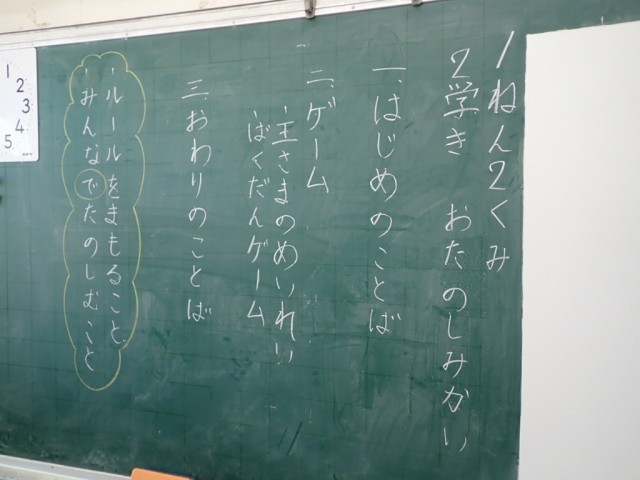 1ねん2くみ
2学き おたのしみかい
一、はじめのことば
二、ゲーム
・王さまのめいれい
・ばくだんゲーム
三、おわりのことば
・ルールをまもること
・みんなでたのしむこと
1
2
3
4
5